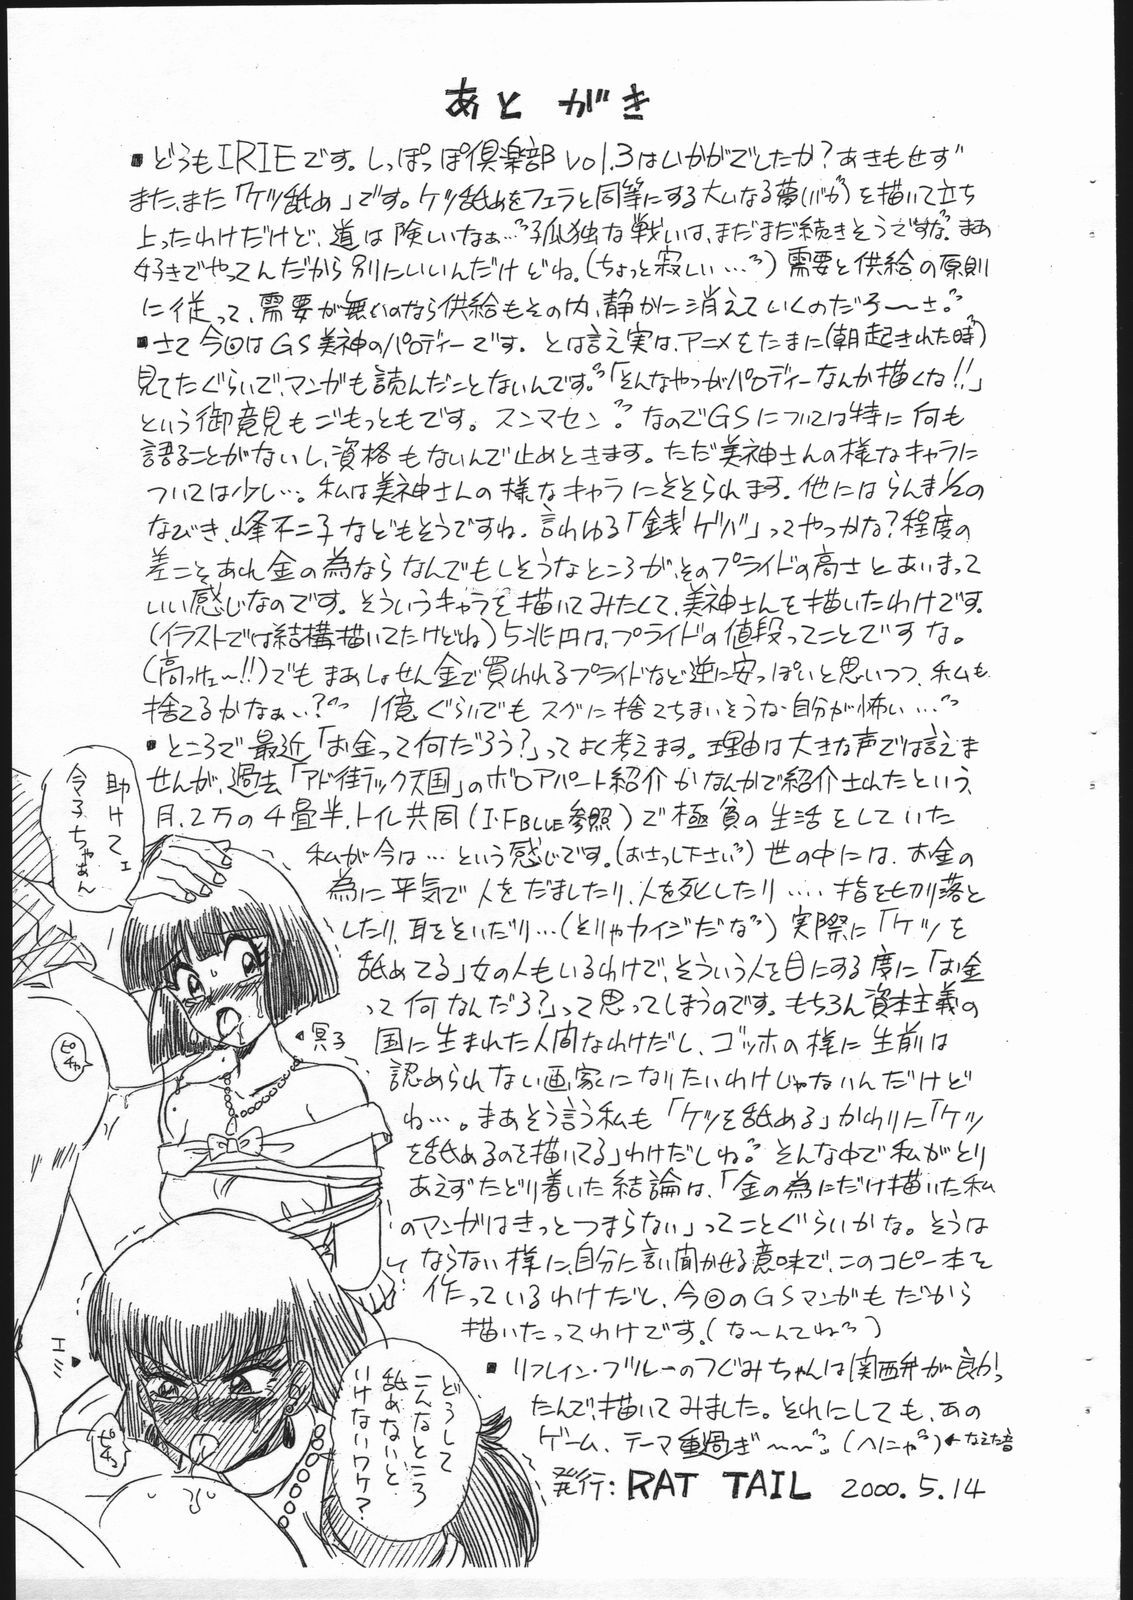 あとがき
▪どうもIRIEです。しっぽっぽ倶楽部vol.3はいかがでしたか？あきもせず
また、また「ケツ舐め」です。ケツ舐めをフェラと同等にする大いなる夢(バカ)を描いて立ち
上ったわけだけど、道は険しいなぁ…孤独な戦いは、まだまだ続きそうですな。まあ
好きでやってんだから別にいいんだけどね。(ちょっと寂しい…)需要と供給の原則
に従って、需要が無いのなら供給もその内、静かに消えていくのだろ〜さ。
▪さて今回はGS美神のパロディーです。とは言え実は、アニメをたまに(朝起きれた時)
見てたぐらいで、マンガも読んだことないんです。「そんなやつがパロディーなんか描くな!!」
という御意見もごもっともです。スンマセン。なのでGSについては特に何も
語ることがないし、資格もないんで止めときます。ただ美神さんの様なキャラに
ついては少し…。私は美神さんの様なキャラにそそられます。他にはらんま½の
なびき、峰不二子などもそうですね。言わゆる「銭ゲバ」ってやつかな？程度の
差こそあれ金の為ならなんでもしそうなところが、そのプライドの高さとあいまって
いい感じなのです。そういうキャラを描いてみたくて、美神さんを描いたわけです。
(イラストでは結構描いてたけどね)5兆円は、プライドの値段ってことですな。
(高っけェ〜!!)でもまあしょせん金で買われるプライドなど逆に安っぽいと思いつつ、私も
捨てるかなぁ…？1億ぐらいでもスグに捨てちまいそうな自分が怖い…
▪ところで最近「お金って何だろう？」ってよく考えます。理由は大きな声では言えま
せんが、過去「アド街ック天国」のボロアパート紹介かなんかで紹介されたという、
月、2万の4畳半、トイレ共同(I・FBLUE参照)で極貧の生活をしていた
私が今は…という感じです。(おさっし下さい)世の中には、お金の
為に平気で人をだましたり、人を死したり…指を切り落と
したり、耳をそいだり…(そりゃカイジだな)実際に「ケツを
舐めてる」女の人もいるわけで、そういう人を目にする度に「お金
って何なんだろ？」って思ってしまうのです。もちろん資本主義の
国に生まれた人間なわけだし、ゴッホの様に生前は
認められない画家になりたいわけじゃないんだけど
ね…。まあそう言う私も「ケツを舐める」かわりに「ケツ
を舐めるのを描いてる」わけだしね。そんな中で私がとり
あえずたどり着いた結論は、「金の為にだけ描いた私
のマンガはきっとつまらない」ってことぐらいかな。そうは
ならない様に、自分に言い聞かせる意味で、このコピー本を
作っているわけだし、今回のGSマンガもだから
描いたってわけです。(な〜んてね)
▪リフレイン・ブルーのつぐみちゃんは関西弁が良かっ
たんで、描いてみました。それにしても、あの
ゲーム、テーマ重過ぎ〜〜。(へにゃ)←なえた音
発行：RAT TAIL 2000.5.14
助けてェ
令子ちゃあん
冥子
ピチャ
エミ
ピチャ
どうして
こんなところ
舐めないと
いけないワケ？